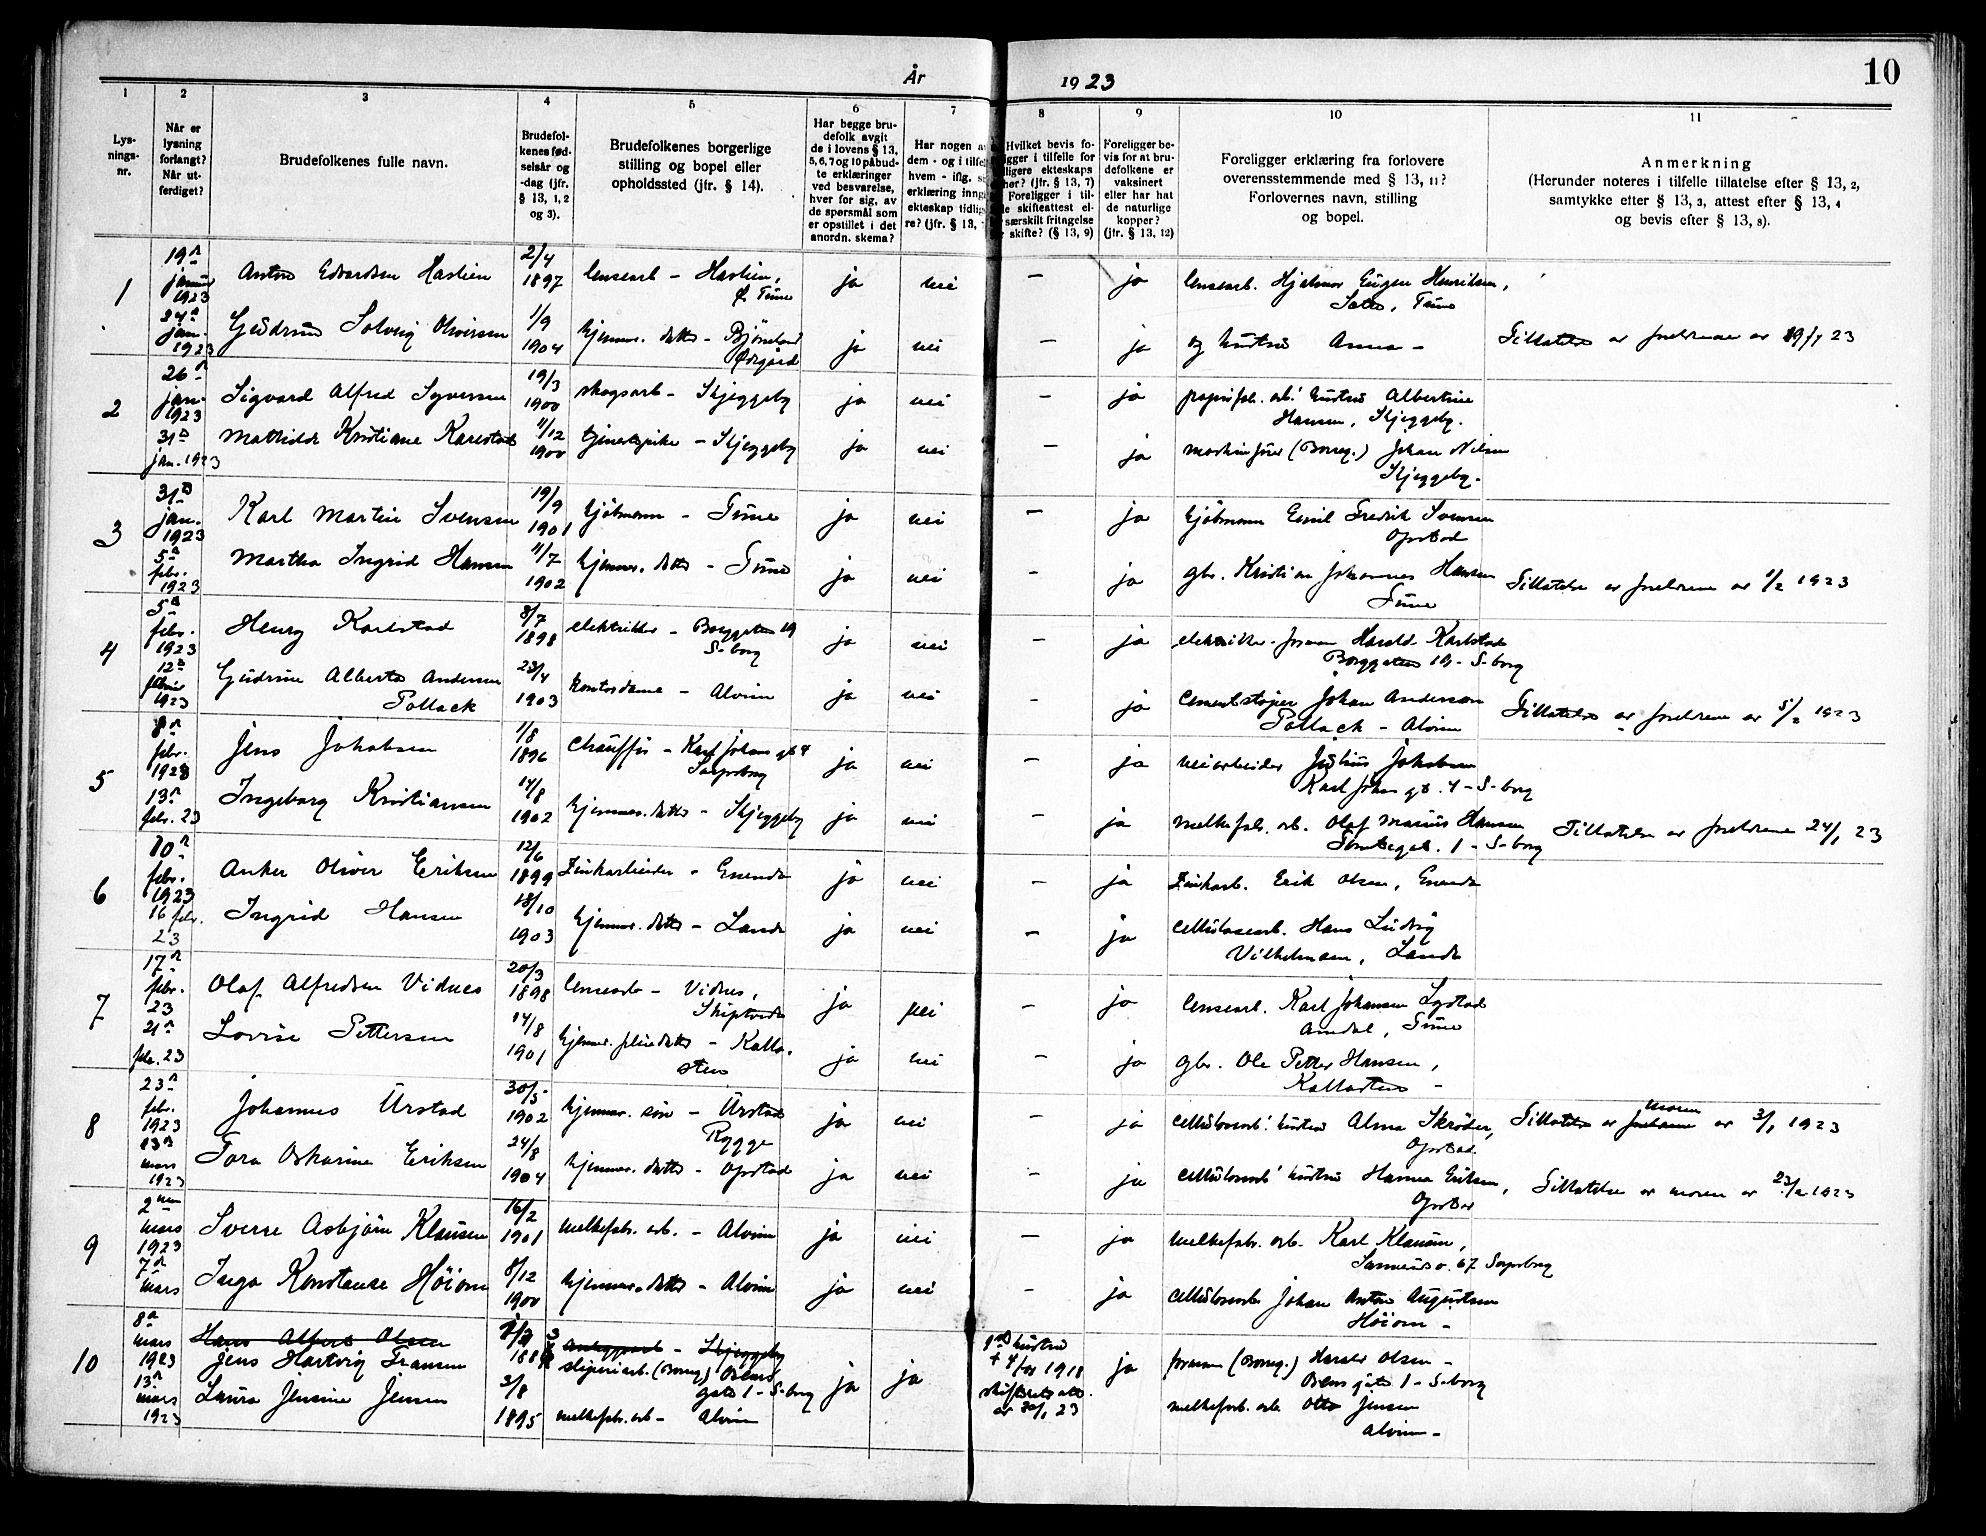 År 1923
10
1
2
3
4
5
6
7
8
9
10
11
Lys-
nings-
nr.
Når er
lysning
forlangt?
Når ut-
ferdiget?
Brudefolkenes fulle navn.
Brudefol-
kenes fød-
selsår og
-dag (jfr.
§ 13, 1, 2
og 3).
Brudefolkenes borgerlige
stilling og bopel eller
opholdssted (jfr. § 14).
Har begge bru-
defolk avgit
de i lovens § 13,
5, 6, 7 og 10 påbud-
te erklæringer
ved besvarelse,
hver for sig, av
de spørsmål som
er opstillet i det
anordn. skema?
Har nogen a
dem - og i tilfel
hvem - iflg. s
erklæring inng
ekteskap tidlig
re? (jfr. § 13,
Hvilket bevis fo-
ligger i tilfelle for
ligere ekteskaps
her? (jfr. § 13, 7)
Foreligger i til-
le skifteattest el-
særskilt fritagelse
skifte? (§ 13, 9)
Foreligger be-
vis for at bru-
defolkene er
vaksinert
eller har hat
de naturlige
kopper?
(jfr. § 13, 12)
Foreligger erklæring fra forlovere
overensstemmende med § 13, 11?
Forlovernes navn, stilling
og bopel.
Anmerkning
(Herunder noteres i tilfelle tillatelse efter § 13, 2,
samtykke efter § 13, 3, attest efter § 13, 4
og bevis efter § 13, 8).
1
19
januar
1923
Anton Edvardsen Haslien
2/4
1897
lensearb - Haslien,
Ø. Tune
ja nei — ja
lensearb. Hjalmar Eugen Henriksen,
Tune
24
jan.
1923
Gudrun Solveig Oliversen
1/9
1904
hjemmev. datter - Bjørneland
ja nei ja
og hustru Anna -
Tillatelse av foreldrene av 19/1 23
2
26
jan.
1923
Sigvard Alfred Syversen
19/3
1900
skogsarb - Skjeggeby
ja nei — ja
papirfab. arb. hustru Albertine
Hansen, Skjeggeby.
31
jan. 1923
Mathilde Kristiane Karlstad
11/12
1900
tjenestepike - Skjeggeby
ja nei — ja
maskinfører (Borreg.) Johan Nilsen
Skjeggeby.
3
31
jan.
1923
Karl Martin Svensen
19/9
1901
kjøbmann - Tune
ja nei — ja
kjøbmann Emil Fredrik Svensen
Opstad
5
febr.
1923
Martha Ingrid Hansen
11/7
1902
hjemmev. datter - Tune
ja nei — ja
gbr. Kristian Johannes Hansen
Tune
Tillatelse av foreldrene av 1/2 1923
4
5
febr.
1923
Henry Karlstad
8/7
1898
elektriker - Borggaten 19
S-borg
ja nei — ja
elektriker-forman Harald Karlstad
Borggaten 19 - S-borg
12
februar
1923
Gudrun Alberta Andersen
Pollack
23/4
1903
kontordame - Alvim
ja nei - ja
Cementstøper Johan Anderson
Pollack - Alvim
Tillatelse av foreldrene av 5/2 1923
5
8
febr.
1923
Jens Jakobsen
1/8
1896
Chauffør - Karl Johans gt 4
Sarpsborg
ja nei — ja
veiarbeider Julius Jakobsen
Karl Johans gt. 4 - S-borg
13
febr. 23
Ingeborg Kristiansen
14/8
1902
hjemmev. datter - Skjeggeby
ja nei — ja
melkefab. arb. Olaf Marius Hansen
1 - S-borg
Tillatelse av foreldrene 24/1 23
6
10
febr.
1923
Anker Oliver Eriksen
12/6
1899
Zinkarbeider - Grenda
ja nei — ja
Zinkarb. Erik Olsen, Grenda
16 febr.
23
Ingrid Hansen
18/10
1903
hjemmev. datter - Lande
ja nei — ja
cellulosearb. Hans Ludvig
Vilhelmsen, Lande
7
17
febr.
23
Olaf Alfredsen Vidnes
20/3
1898
lensearb - Vidnes,
Skiptvedt
ja nei — ja
lensearb. Karl Johansen Lystad
Tune
21
febr. 23
Lovise Pettersen
14/8
1901
hjemmev. pleiedatter - Kalla-
sten
ja nei — ja
gbr. Ole Petter Hansen,
Kallasten -
8
23
febr.
1923
Johannes Urstad
30/5
1902
hjemmev. søn - Urstad
Rygge
ja nei — ja
cellulosearb. hustru Alma Skrøder,
Opstad.
Tillatelse av foreldrene moren av 3/1 1923
13
mars
1923
Tora Oskarine Eriksen
24/8
1904
hjemmev. datter - Opstad
ja nei — ja
cellulosearb. hustru Hanna Eriksen,
Opstad
Tillatelse av moren av 23/2 1923
9
2
mars
1923
Sverre Asbjørn Klausen
16/2
1901
melkefabr. arb. - Alvim
ja nei — ja
melkefabr. arb. Karl Klausen,
67 Sarpsborg
7
mars
Inga Konstanse Høiom
8/12
1900
hjemmev. datter - Alvim
ja nei - ja
cellulosearb Johan Anton Augustsen
Høiom -
10
8
mars
1923
Hans Alfred Olsen
Jens Hartvig Fransen
Skjeggeby
sliperiarb. (Borreg.)
gate 1 - S-borg
ja ja
hustru
+ 1918
skifteretsatt.
av 30/1 23
ja
forman (Borreg.) Harald Olsen -
1 - S-borg
13
mars
1923
Laura Jensine Jensen
3/8
1895
melkefab. arb - Alvim
melkefab. arb. Otto Jensen
Alvim -